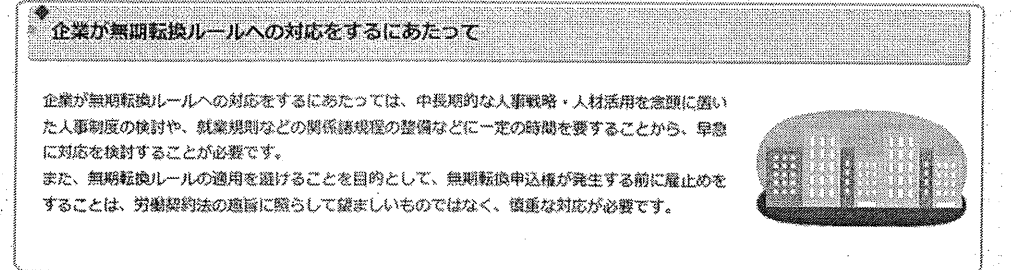 企業が無期転換ルールへの対応をするにあたって
企業が無期転換ルールへの対応をするにあたっては、中長期的な人事戦略・人材活用を念頭に置い
た人事制度の検討や、就業規則などの関係諸規程の整備などに一定の時間を要することから、早急
に対応を検討することが必要です。
また、無期転換ルールの適用を避けることを目的として、無期転換申込権が発生する前に雇止めを
することは、労働契約法の趣旨に照らして望ましいものではなく、慎重な対応が必要です。